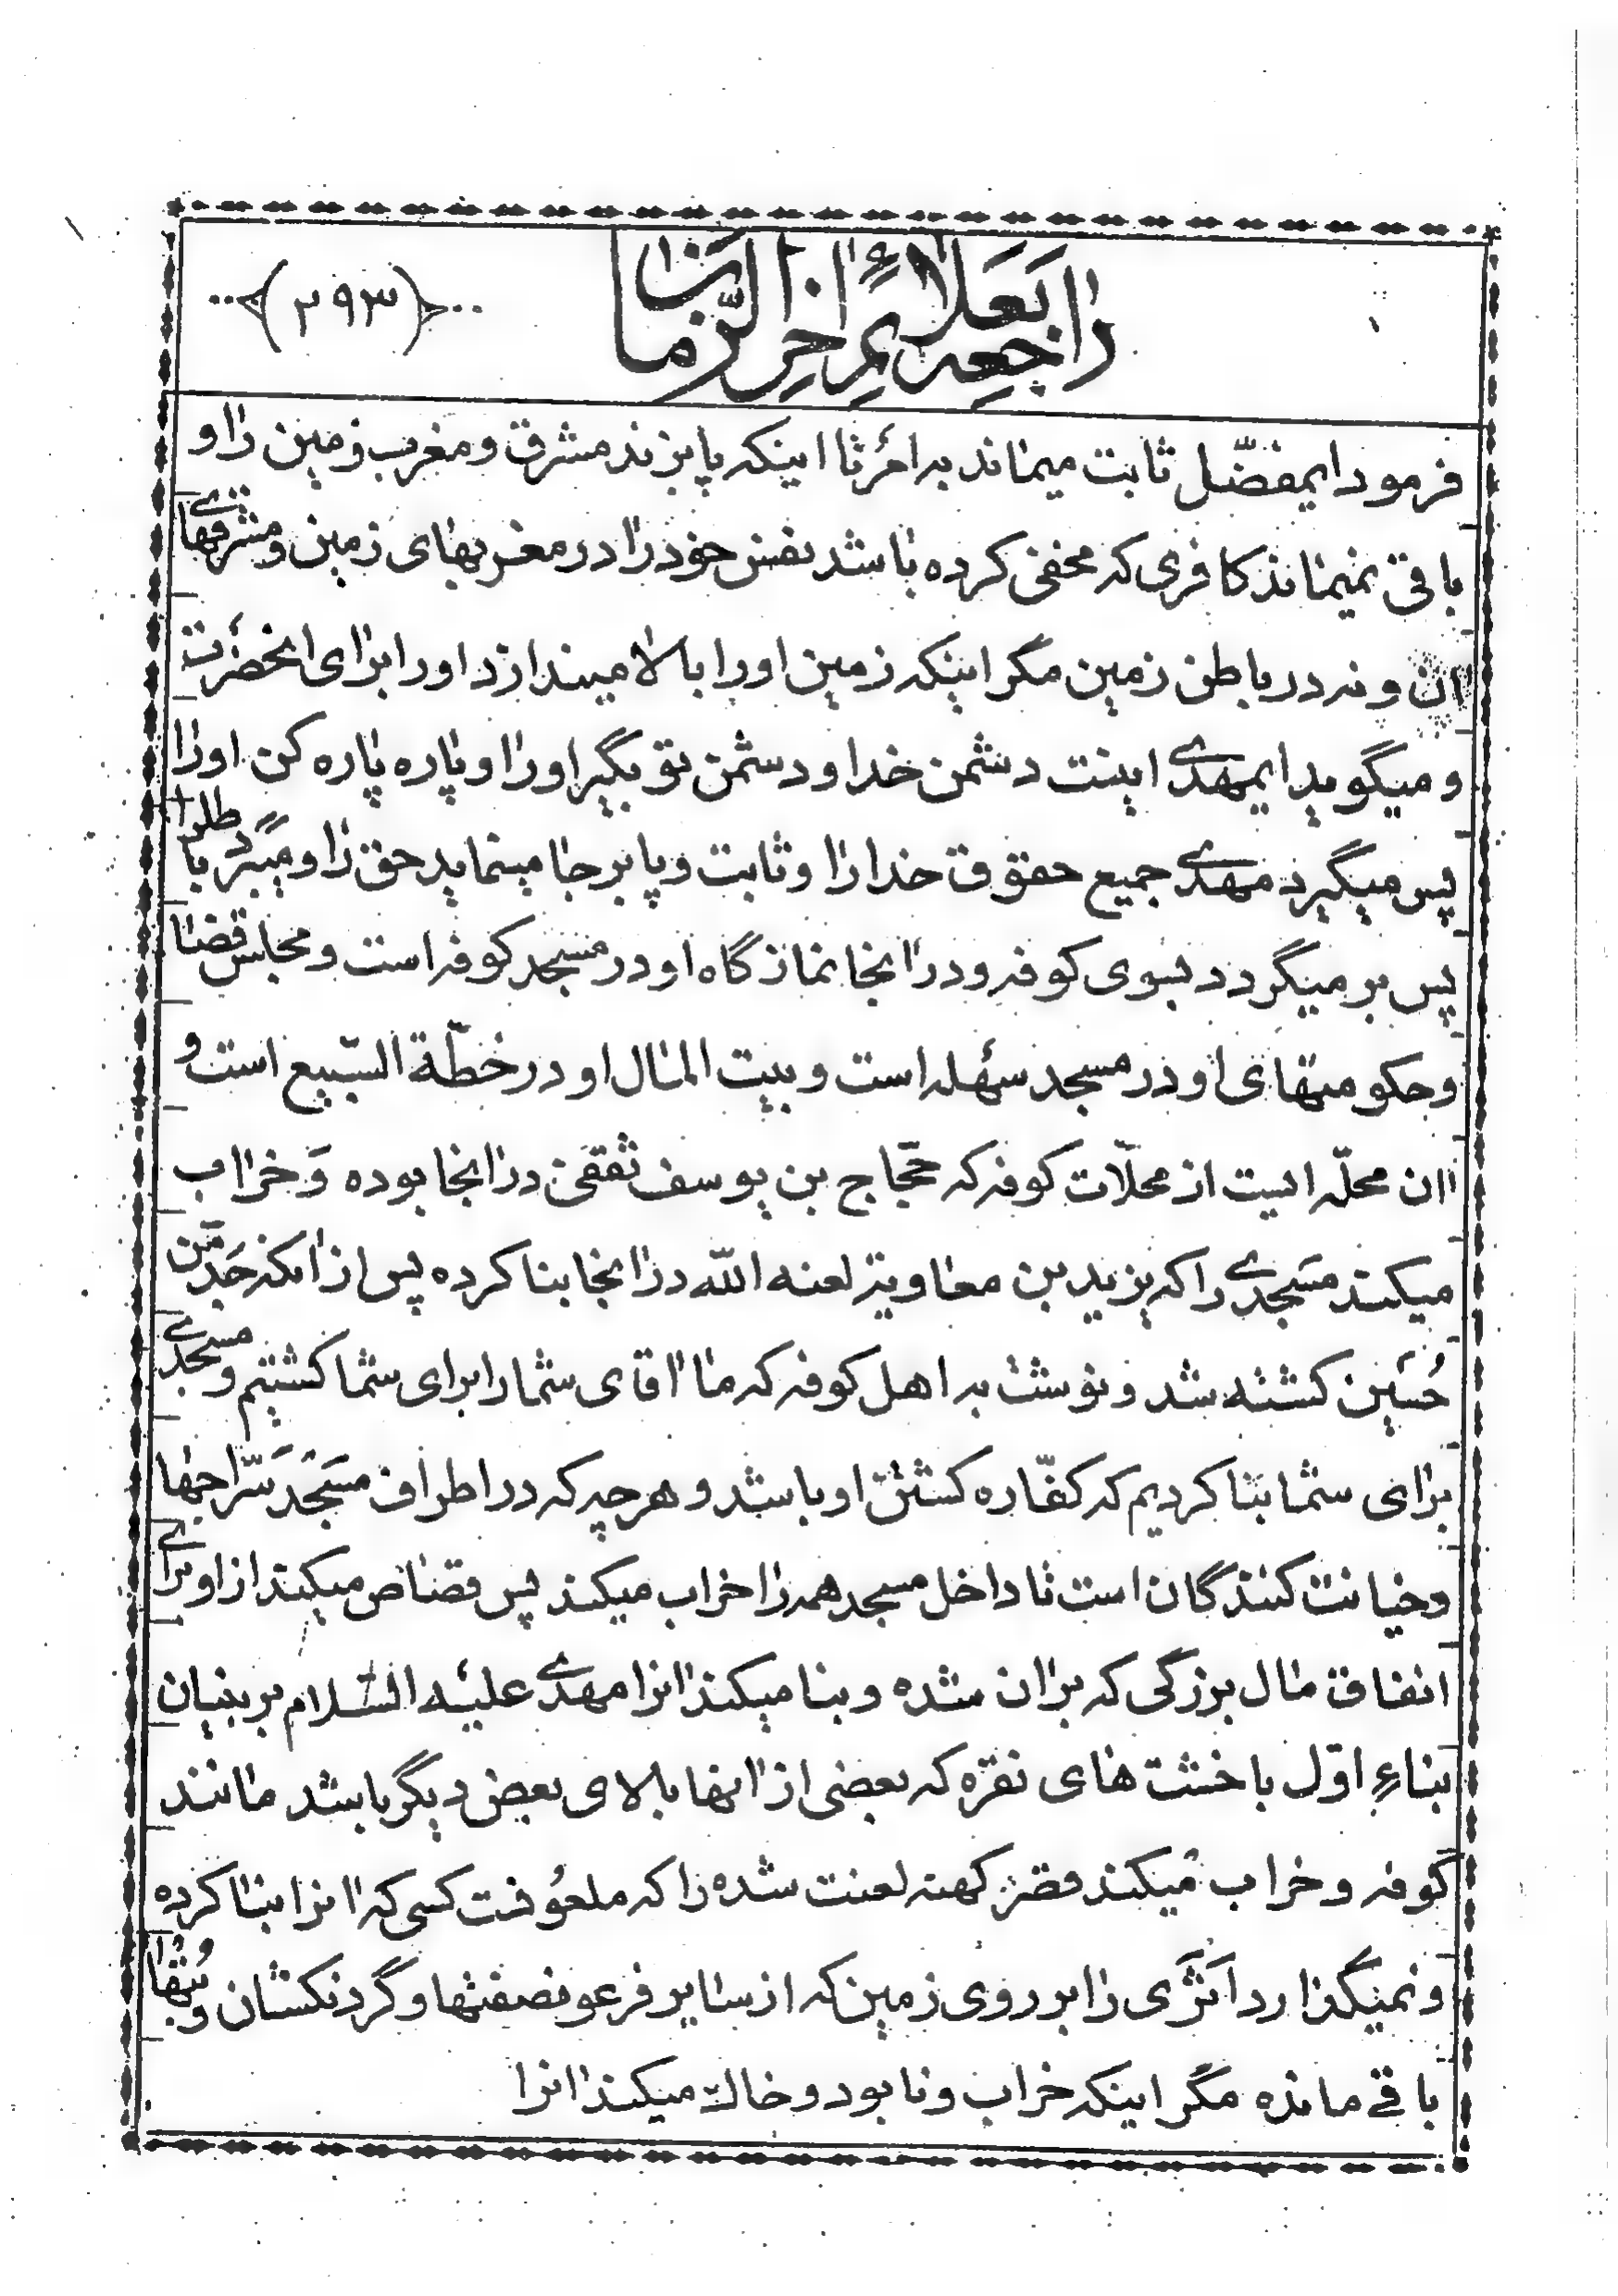 راجعه بعلائم اخر الزمان
(۲۹۳)
فرمود ایمفضّل ثابت میماند به امر تا اینکه پا بزند مشرق و مغرب زمین را و
باقی نمیماند کافری که مخفی کرده باشد نفس خود را در مغربهای زمین و مشرقهای
ان و نه در باطن زمین مگر اینکه زمین او را بالا میندازد او را برای انحضرت
و میگوید ایمهدی اینست دشمن خدا و دشمن تو بگیر او را و پاره پاره کن او را
پس میگیرد مهدی جمیع حقوق خدا را و ثابت و پا برجا مینماید حق را و میبرد باطل را
پس بر میگردد بسوی کوفه و در انجا نمازگاه او در مسجد کوفه است و مجلس قضا
و حکومتهای او در مسجد سهله است و بیت المال او در خطّة السّبیع است و
ان محلّه ایست از محلّات کوفه که حجّاج بن یوسف ثقفی در انجا بوده وَ خراب
میکند مسجدی را که یزید بن معاویه لعنه الله در انجا بنا کرده پس از انکه جدّ من
حُسَین کشته شد و نوشت به اهل کوفه که ما اقای شما را برای شما کشتیم و مسجدی
برای شما بنا کردیم که کفّاره کشتن او باشد و هر چه که در اطراف مسجد سرّاجها
و خیانت کنندگان است تا داخل مسجد همه را خراب میکند پس قصاص میکند از او برای
انفاق مال بزرگی که بر ان شده و بنا میکند انرا مهدی علیه السّلام بر بنیان
بناءِ اوّل با خشت های نقره که بعضی از انها بالای بعض دیگر باشد مانند
کوفه و خراب میکند قصر کهنه لعنت شده را که ملعُونست کسی که انرا بنا کرده
و نمیگذارد اَثری را بر روی زمین که از سایر فرعون صفتها و گردنکشان و بُتها
باقی مانده مگر اینکه خراب و نابود و خاک میکند انرا